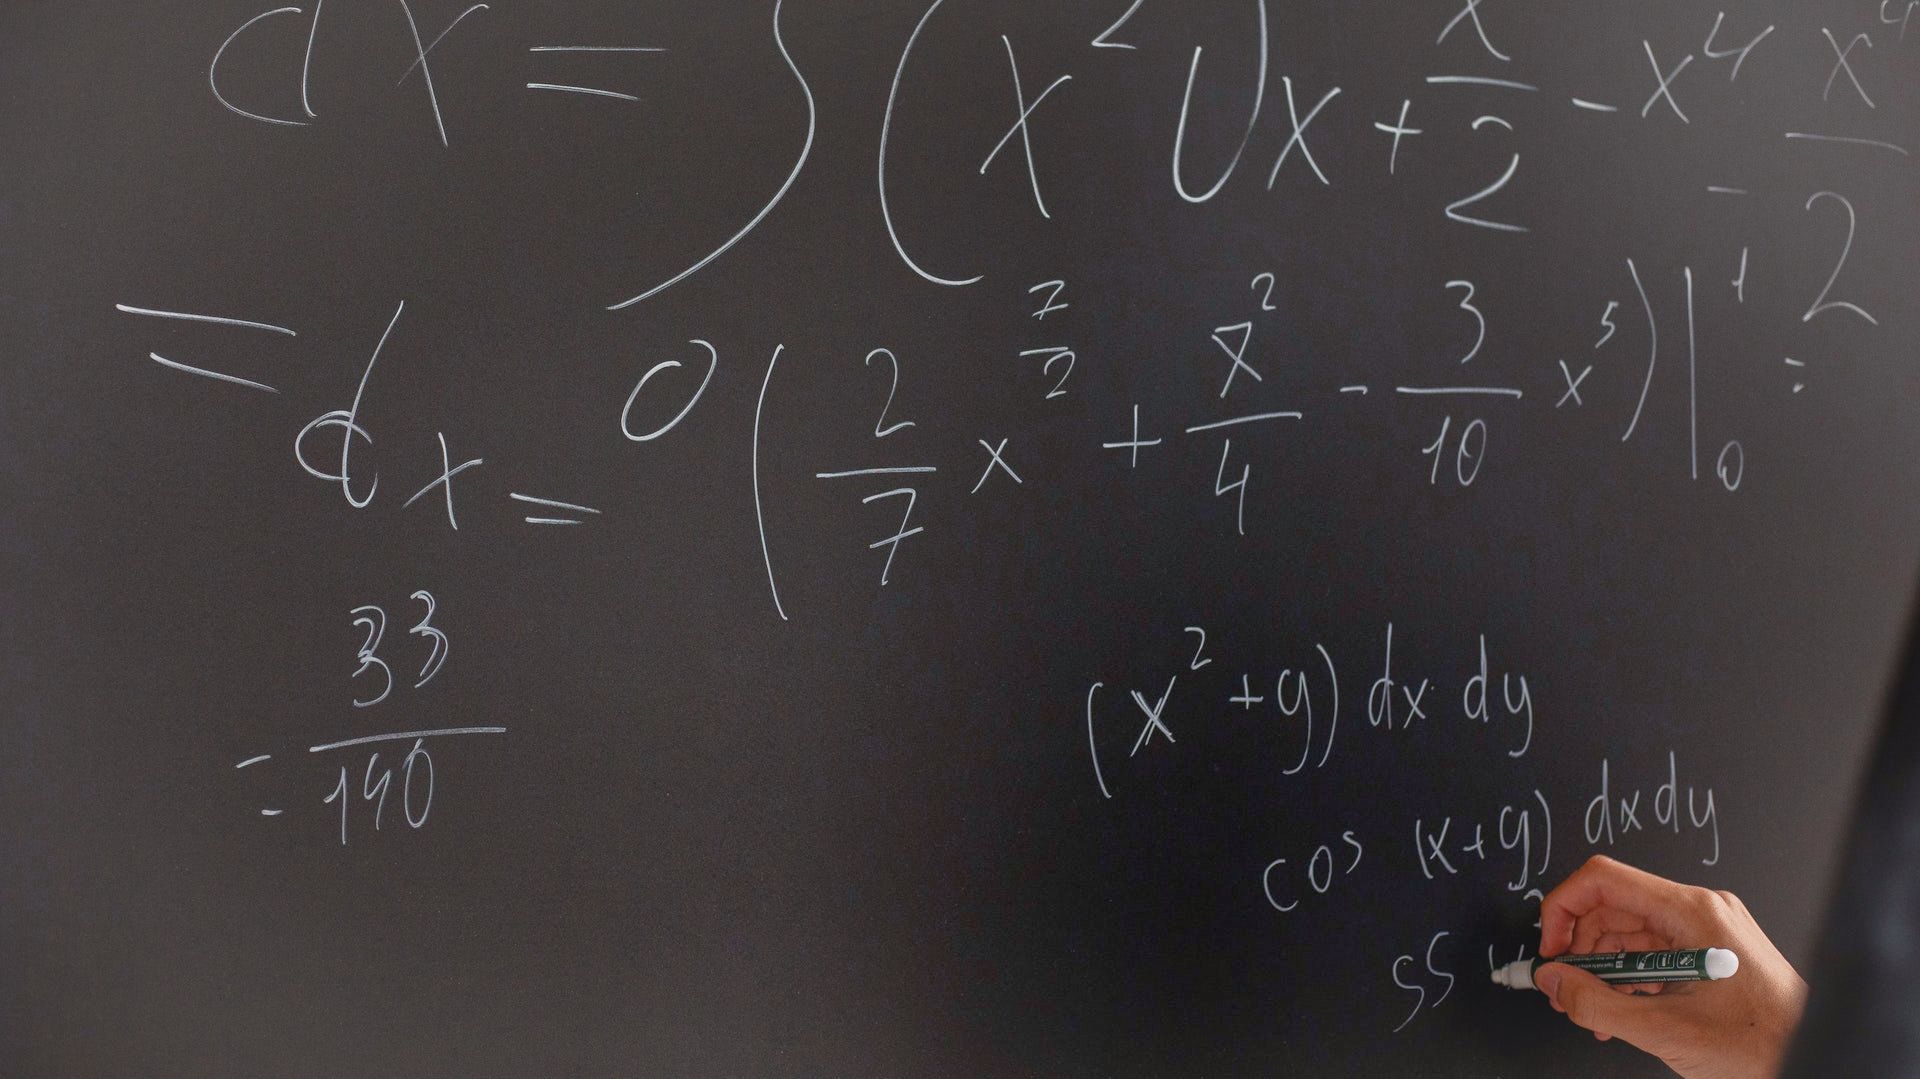 dx = ∫(x² √x + x/2 - x⁴ - x⁴/2
= dx = 0 (2/7 x^(7/2) + x²/4 - 3/10 x⁵)|₀¹ =
= 33/140
(x² + y) dx dy
cos (x+y) dxdy
SS